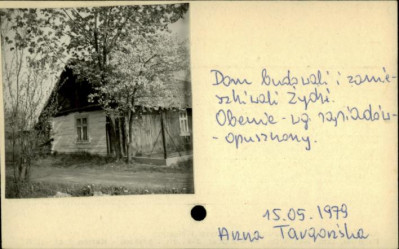 Dom budowali i zamie-
szkiwali Żydzi.
Obecnie - wg sąsiadów -
- opuszczony.
15.05.1979
Anna Targońska